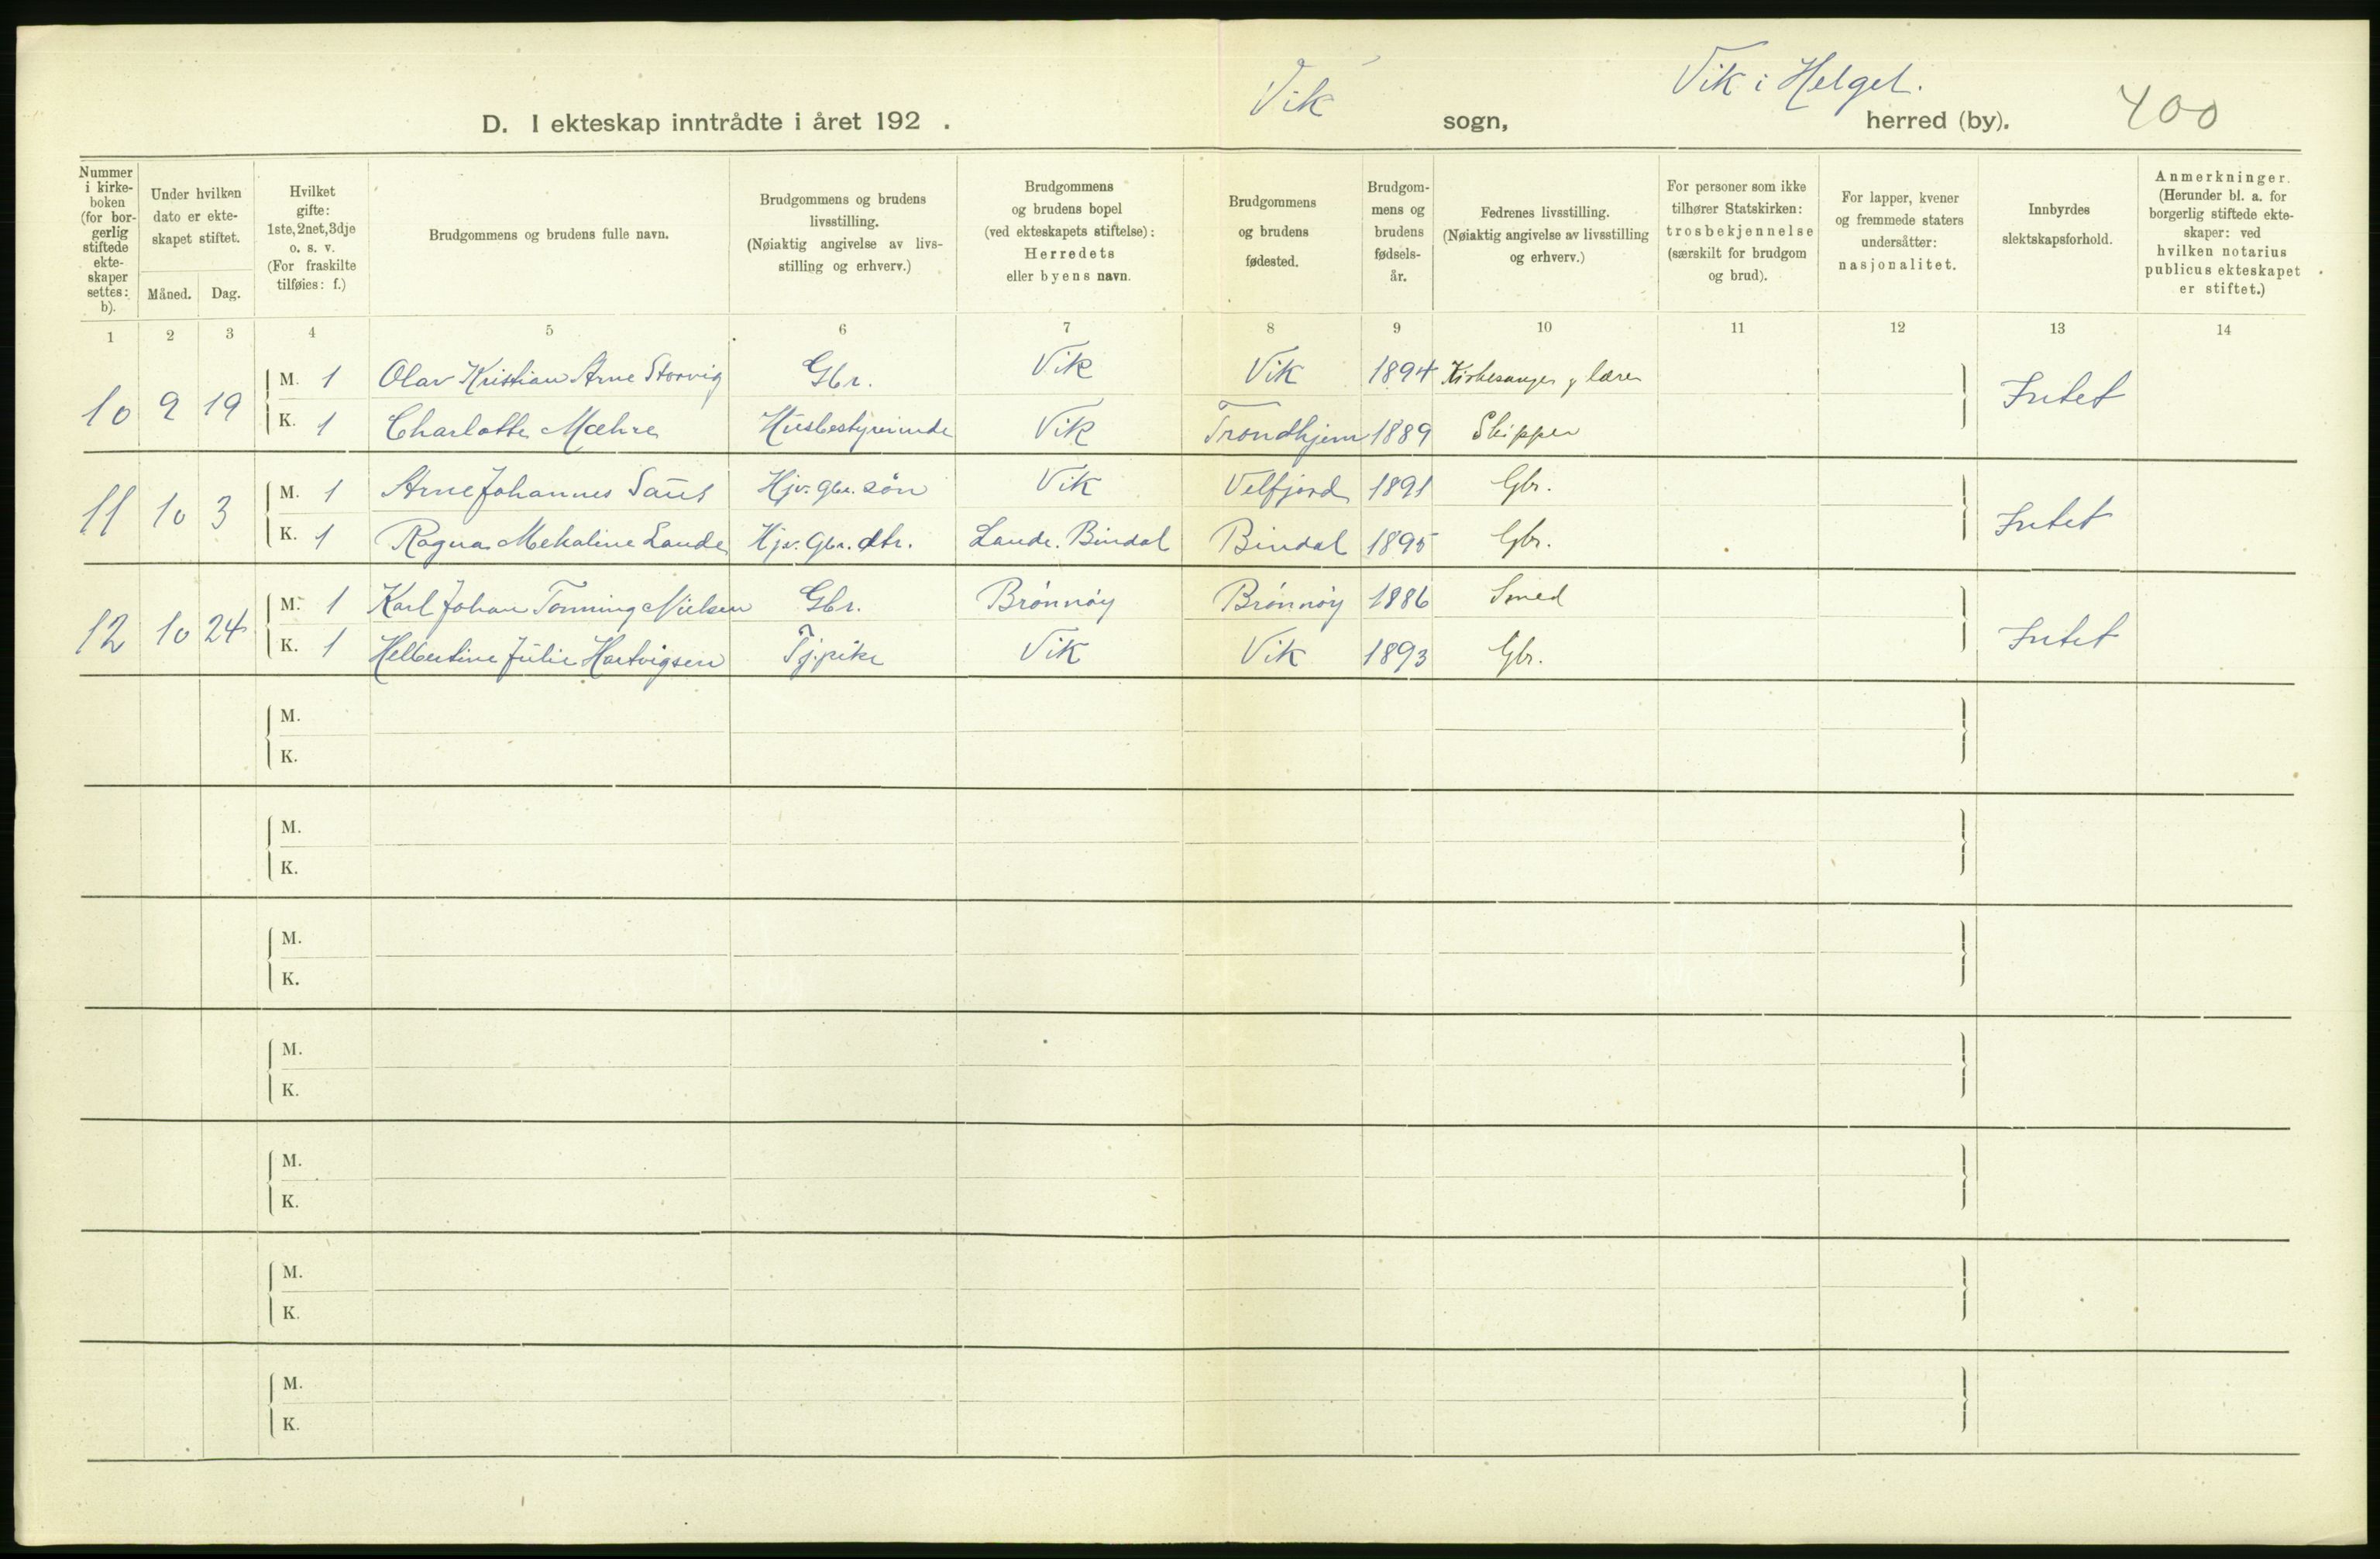 D. I ekteskap inntrådte i året 192 . Vik sogn, Vik i Helgel. herred (by). 400
Nummer i kirke-boken (for bor-gerlig stiftede ekte-skaper settes: b).
Under hvilken dato er ekte-skapet stiftet.
Måned. Dag.
Hvilket gifte: 1ste, 2net, 3dje o. s. v. (For fraskilte tilføies: f.)
Brudgommens og brudens fulle navn.
Brudgommens og brudens livsstilling. (Nøiaktig angivelse av livs-stilling og erhverv.)
Brudgommens og brudens bopel (ved ekteskapets stiftelse): Herredets eller byens navn.
Brudgommens og brudens fødested.
Brudgom-mens og brudens fødsels-år.
Fedrenes livsstilling. (Nøiaktig angivelse av livsstilling og erhverv.)
For personer som ikke tilhører Statskirken: trosbekjennelse (særskilt for brudgom og brud).
For lapper, kvener og fremmede staters undersåtter: nasjonalitet.
Innbyrdes slektskapsforhold.
Anmerkninger. (Herunder bl. a. for borgerlig stiftede ekte-skaper: ved hvilken notarius publicus ekteskapet er stiftet.)
1 2 3 4 5 6 7 8 9 10 11 12 13 14
10 9 19 M. 1 Olav Kristian Arne Storvig Gbr. Vik Vik 1894 Kirkesanger og lærer Intet
K. 1 Charlotte Mæhre Husbestyrerinde Vik Trondhjem 1889 Skipper
11 10 3 M. 1 Arne Johannes Saus Hjv. gbr. søn Vik Velfjord 1891 Gbr. Intet
K. 1 Ragna Mekaline Lande Hjv. Gbr. dtr. Lande. Bindal Bindal 1895 Gbr.
12 10 24 M. 1 Karl Johan Tonning Nielsen Gbr. Brønnøy Brønnøy 1886 Smed Intet
K. 1 Helbertine Julie Hartvigsen Tj.pike Vik Vik 1893 Gbr.
M.
K.
M.
K.
M.
K.
M.
K.
M.
K.
M.
K.
M.
K.